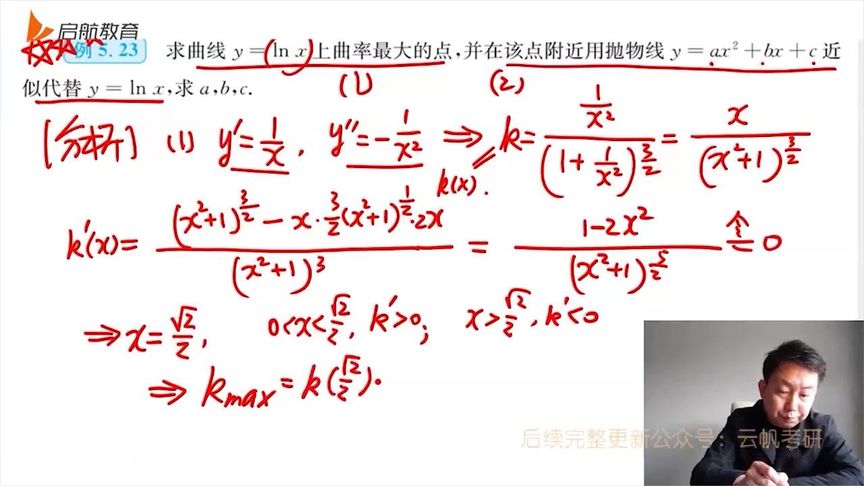 启航教育
例 5.23 求曲线 y=ln x 上曲率最大的点,并在该点附近用抛物线 y=ax²+bx+c 近
似代替 y=ln x,求 a,b,c.
(1) (2)
[分析] (1) y'=1/x, y''=-1/x² ⇒ k=(1/x²)/(1+1/x²)^(3/2)=x/(x²+1)^(3/2)
k(x).
k'(x)=((x²+1)^(3/2)-x·3/2(x²+1)^(1/2)·2x)/(x²+1)³=(1-2x²)/(x²+1)^(5/2) 令= 0
⇒x=√2/2, 0<x<√2/2, k'>0; x>√2/2, k'<0
⇒ kmax=k(√2/2).
后续完整更新公众号:云帆考研